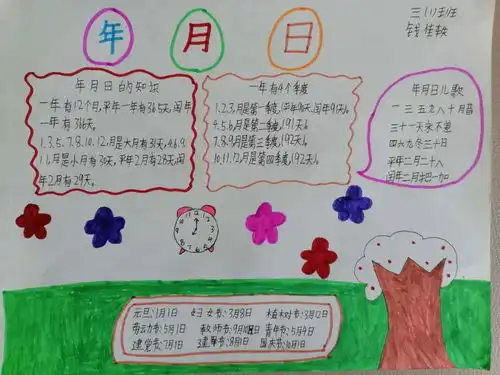 三(1)班
年月日
年月日的知识
一年有12个月,平年一年有365天,闰年
一年有366天。
1.3.5.7.8.10.12.月是大月有31天,4.6.9.
11.月是小月有30天,平年2月有28天,闰
年2月有29天。
一年有4个季度
1.2.3.月是第一季度,平年90天,闰年91天。
4.5.6.月是第二季度,191天。
7.8.9.月是第三季度,192天。
10.11.12.月是第四季度,192天。
年月日儿歌
一三五七八十月腊
三十一天永不差
四六九冬三十日
平年二月二十八
闰年二月把一加
12 1 2 3 4 5 6 7 8 9 10 11
元旦:1月1日 妇女节:3月8日 植树节:3月12日
劳动节:5月1日 教师节:9月10日 青年节:5月4日
建党节:7月1日 建军节:8月1日 国庆节:10月1日